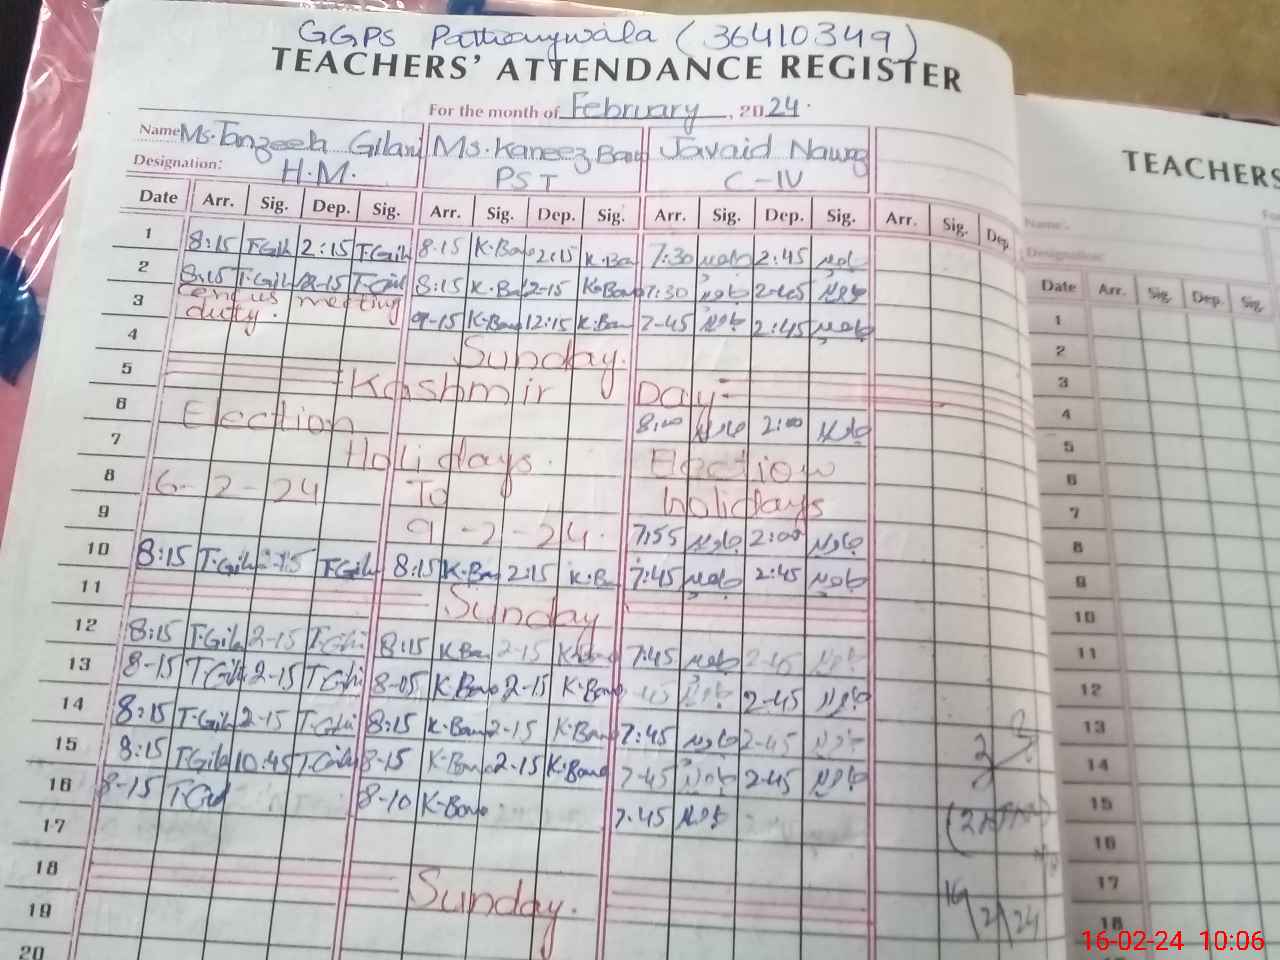 GGPS Pathanywala (36410349)
TEACHERS' ATTENDANCE REGISTER
For the month of February, 2024.
Name Ms. Tanzeela Gilani Ms. Kaneez Bano Javaid Nawaz
Designation: H.M. PST C-IV
Date Arr. Sig. Dep. Sig. Arr. Sig. Dep. Sig. Arr. Sig. Dep. Sig. Arr. Sig. Dep.
1 8:15 T.Gil 2:15 T.Gil 8-15 K.Bano 2:15 K.Ba 7:30 2:45
2 8:15 T.Gil 2-15 T.Gil 8:15 K.Ba 2-15 K.Bano 7:30 2-45
3 Census meeting duty. 9-15 K.Bano 12:15 K.Ban 7-45 2:45
4 Sunday.
5 Kashmir Day
6 Election 8:00 2:00
7 Holidays. Election
8 6-2-24 To holidays
9 9-2-24. 7:55 2:00
10 8:15 T.Gil T.Gil 8:15 K.Bano 2:15 K.Ba 7:45 2:45
11 Sunday
12 8:15 T.Gil 2-15 T.Gil 8:15 K.Ban 2-15 K.Bano 7:45
13 8-15 T.Gil 2-15 T.Gil 8-05 K.Bano 2-15 K.Bano 45 2-45
14 8:15 T.Gil 2-15 T.Gil 8:15 K.Bano 2-15 K.Bano 7:45 2-45
15 8:15 T.Gil 10:45 T.Gil 8-15 K.Bano 2-15 K.Bano 7-45 2-45
16 8-15 T.Gil 8-10 K.Bano 7.45
17
18 Sunday.
19
20
16/2/24
TEACHERS
Name:
Designation:
Date Arr. Sig. Dep. Sig.
1
2
3
4
5
6
7
8
9
10
11
12
13
14
15
16
17
18
16-02-24 10:06